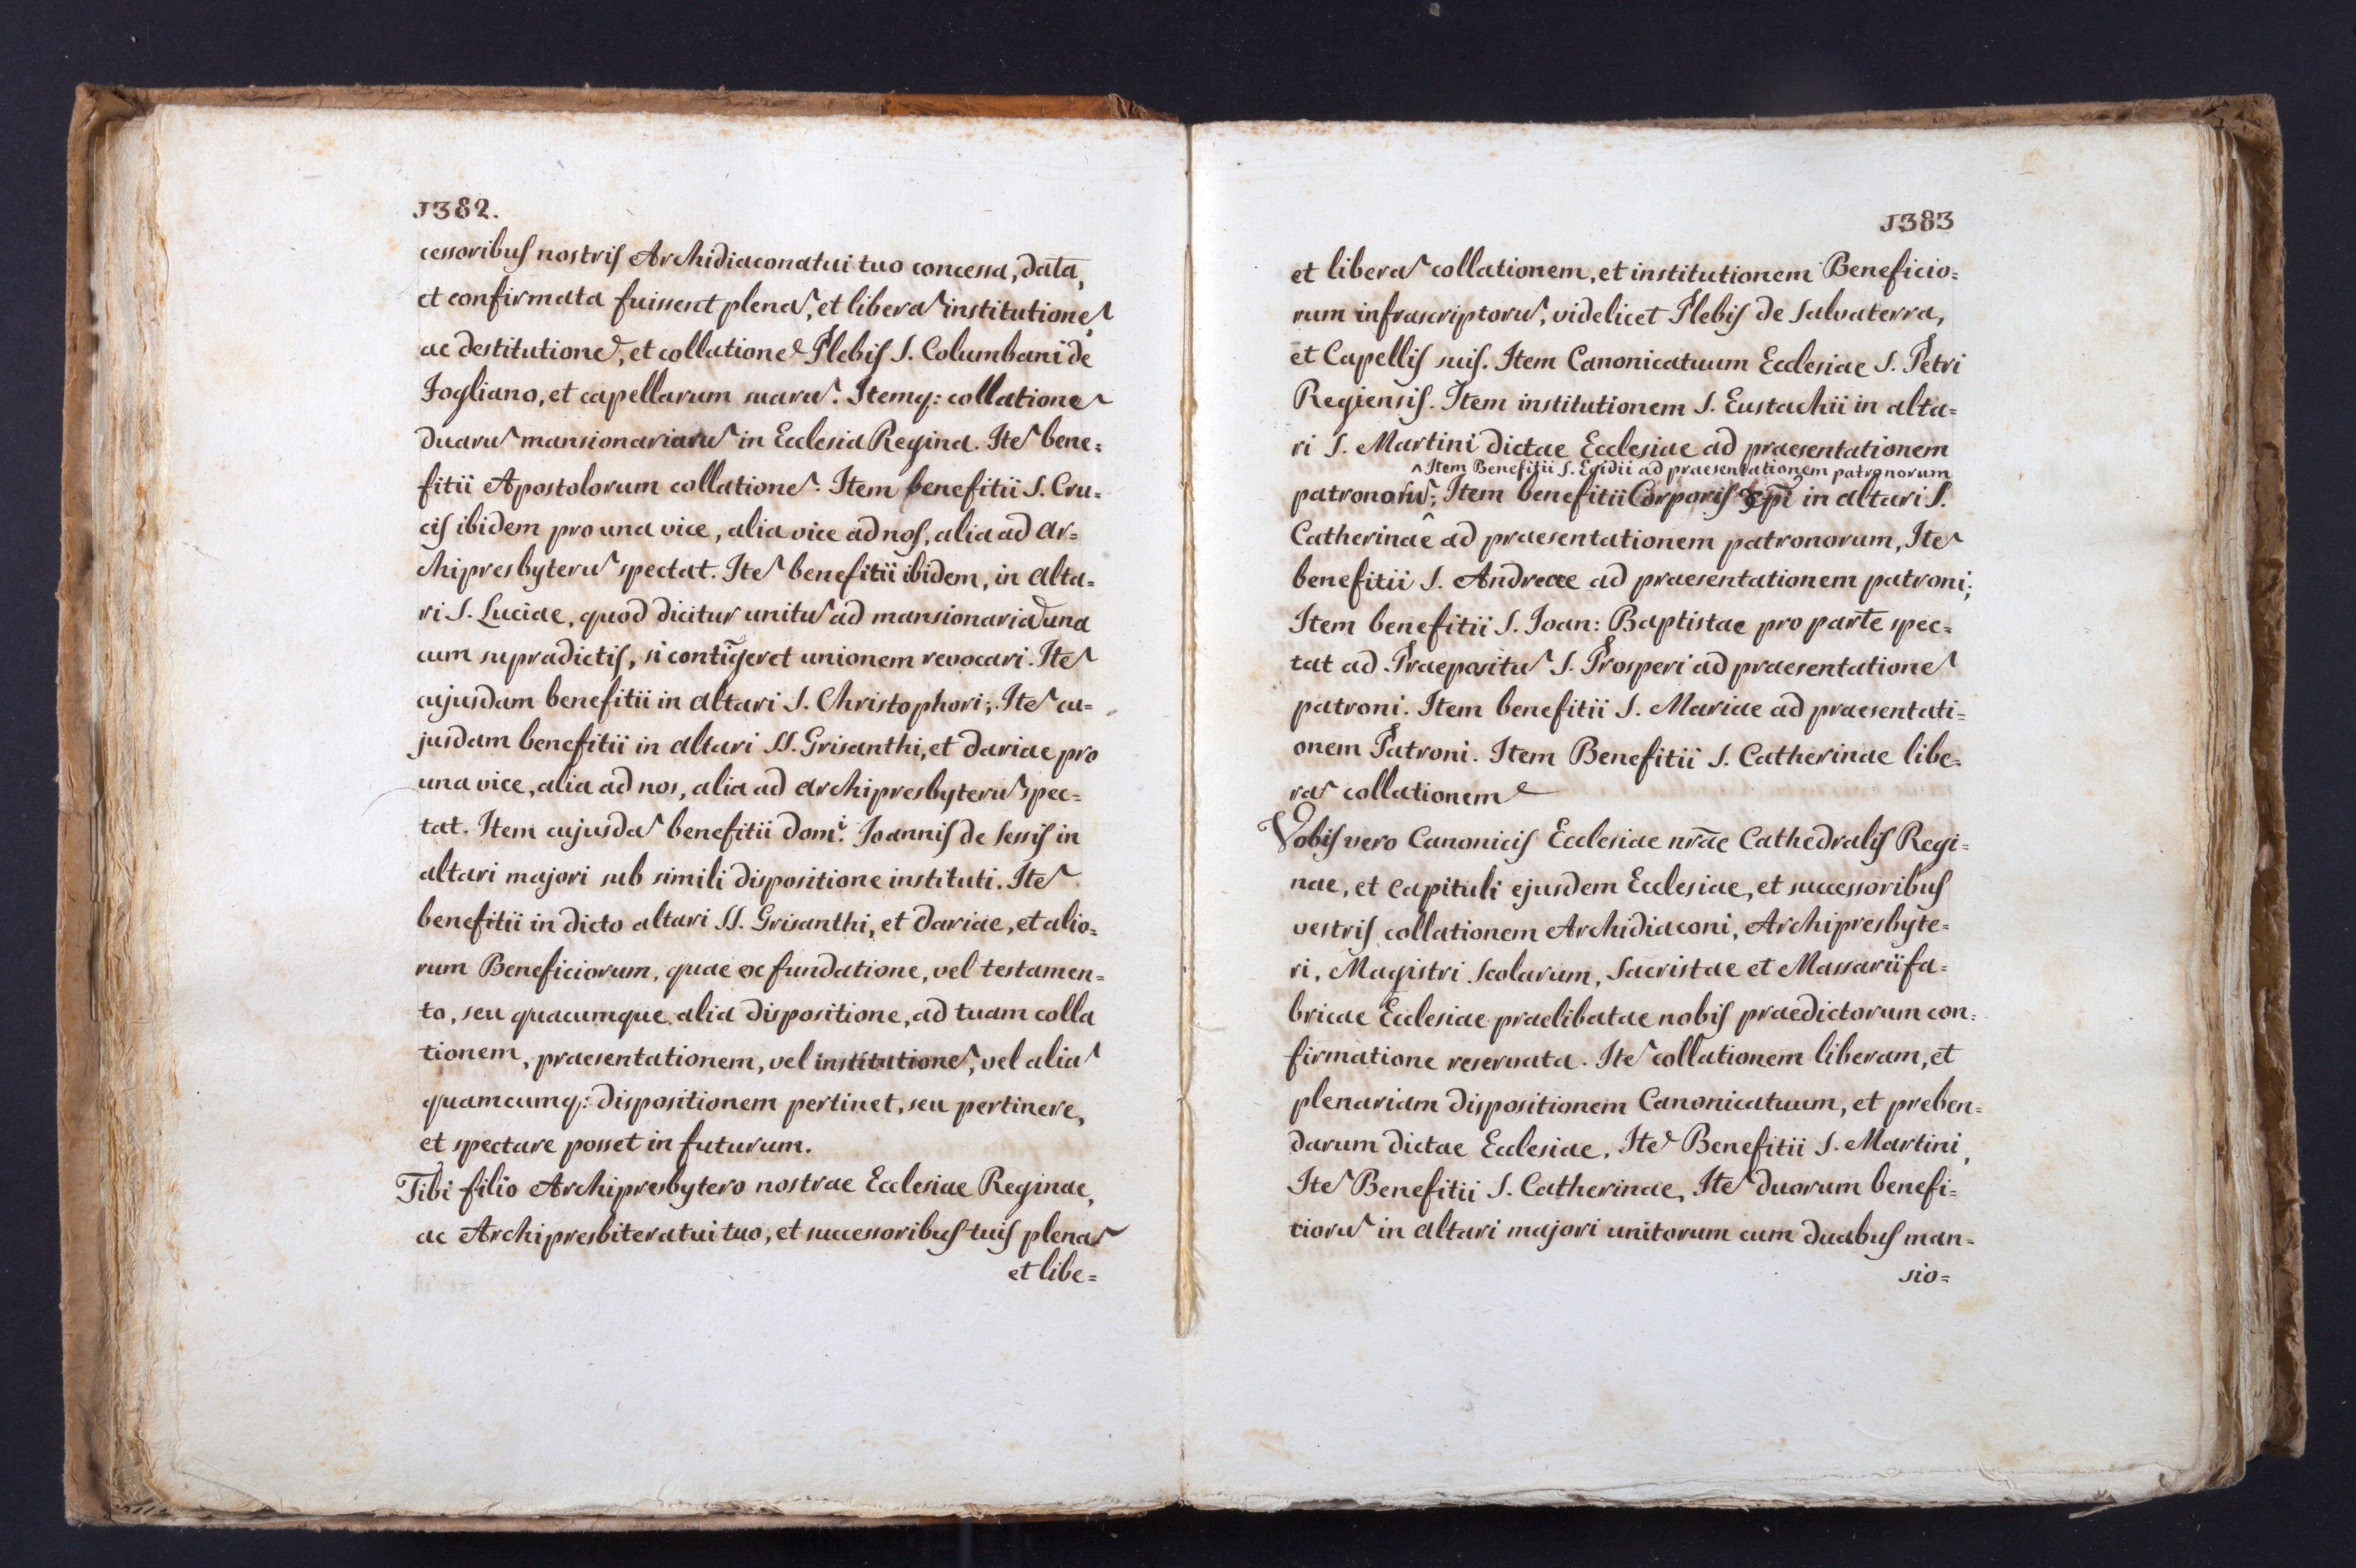 1382.
cessoribus nostris Archidiaconatui tuo concessa, data,
et confirmata fuissent plena&#x303;, et libera&#x303; institutione&#x303;,
ac destitutione&#x303;, et collatione&#x303; Plebis S. Columbani de
Fogliano, et capellarum suaru&#x303;. Itemq: collatione&#x303;
duaru&#x303; mansionariaru&#x303; in Ecclesia Regina. Ite&#x303; bene=
fitii Apostolorum collatione&#x303;. Item benefitii S. Cru=
cis ibidem pro una vice, alia vice ad nos, alia ad Ar=
chipresbyteru&#x303; spectat. Ite&#x303; benefitii ibidem, in Alta=
ri S. Luciae, quod dicitur unitu&#x303; ad mansionaria&#x303; una
cum supradictis, si conti&#x303;geret unionem revocari. Ite&#x303;
cujusdam benefitii in altari S. Christophori; Ite&#x303; cu=
jusdam benefitii in altari SS. Grisanthi, et Dariae pro
una vice, alia ad nos, alia ad Archipresbyteru&#x303; spec=
tat. Item cujusda&#x303; benefitii domi: Joannis de Sessis in
altari majori sub simili dispositione instituti. Ite&#x303;
benefitii in dicto altari SS. Grisanthi, et Dariae, et alio=
rum Beneficiorum, quae ex fundatione, vel testamen=
to, seu quacumque alia dispositione, ad tuam colla
tionem, praesentationem, vel institutione&#x303;, vel alia&#x303;
quamcumq: dispositionem pertinet, seu pertinere,
et spectare posset in futurum.
Tibi filio Archipresbytero nostrae Ecclesiae Reginae,
ac Archipresbiteratui tuo, et successoribus tuis plena&#x303;
et libe=
1383
et libera&#x303; collationem, et institutionem Beneficio=
rum infrascriptoru&#x303;, videlicet Plebis de Salvaterra,
et Capellis suis. Item Canonicatuum Ecclesiae S. Petri
Regiensis. Item institutionem S. Eustachii in alta=
ri S. Martini dictae Ecclesiae ad praesentationem
^ Item Benefitii S. Egidii ad praesentationem patronorum
patronoru&#x303;; Item benefitii Corporis Xpi&#x303; in altari S.
Catherinae^ ad praesentationem patronorum, Ite&#x303;
benefitii S. Andreae ad praesentationem patroni;
Item benefitii S. Joan: Baptistae pro parte spec=
tat ad Praepositu&#x303; S. Prosperi ad praesentatione&#x303;
patroni. Item benefitii S. Mariae ad praesentati=
onem Patroni. Item Benefitii S. Catherinae libe=
ra&#x303; collationem
Vobis vero Canonicis Ecclesiae nr&#x303;ae Cathedralis Regi=
nae, et Capituli ejusdem Ecclesiae, et successoribus
vestris collationem Archidiaconi, Archipresbyte=
ri, Magistri Scolarum, Sacristae et Massarii fa=
bricae Ecclesiae praelibatae nobis praedictorum con=
firmatione reservata. Ite&#x303; collationem liberam, et
plenariam dispositionem Canonicatuum, et preben=
darum dictae Ecclesiae. Ite&#x303; Benefitii S. Martini,
Ite&#x303; Benefitii S. Catherinae, Ite&#x303; duorum benefi=
tioru&#x303; in altari majori unitorum cum duabus man=
sio=